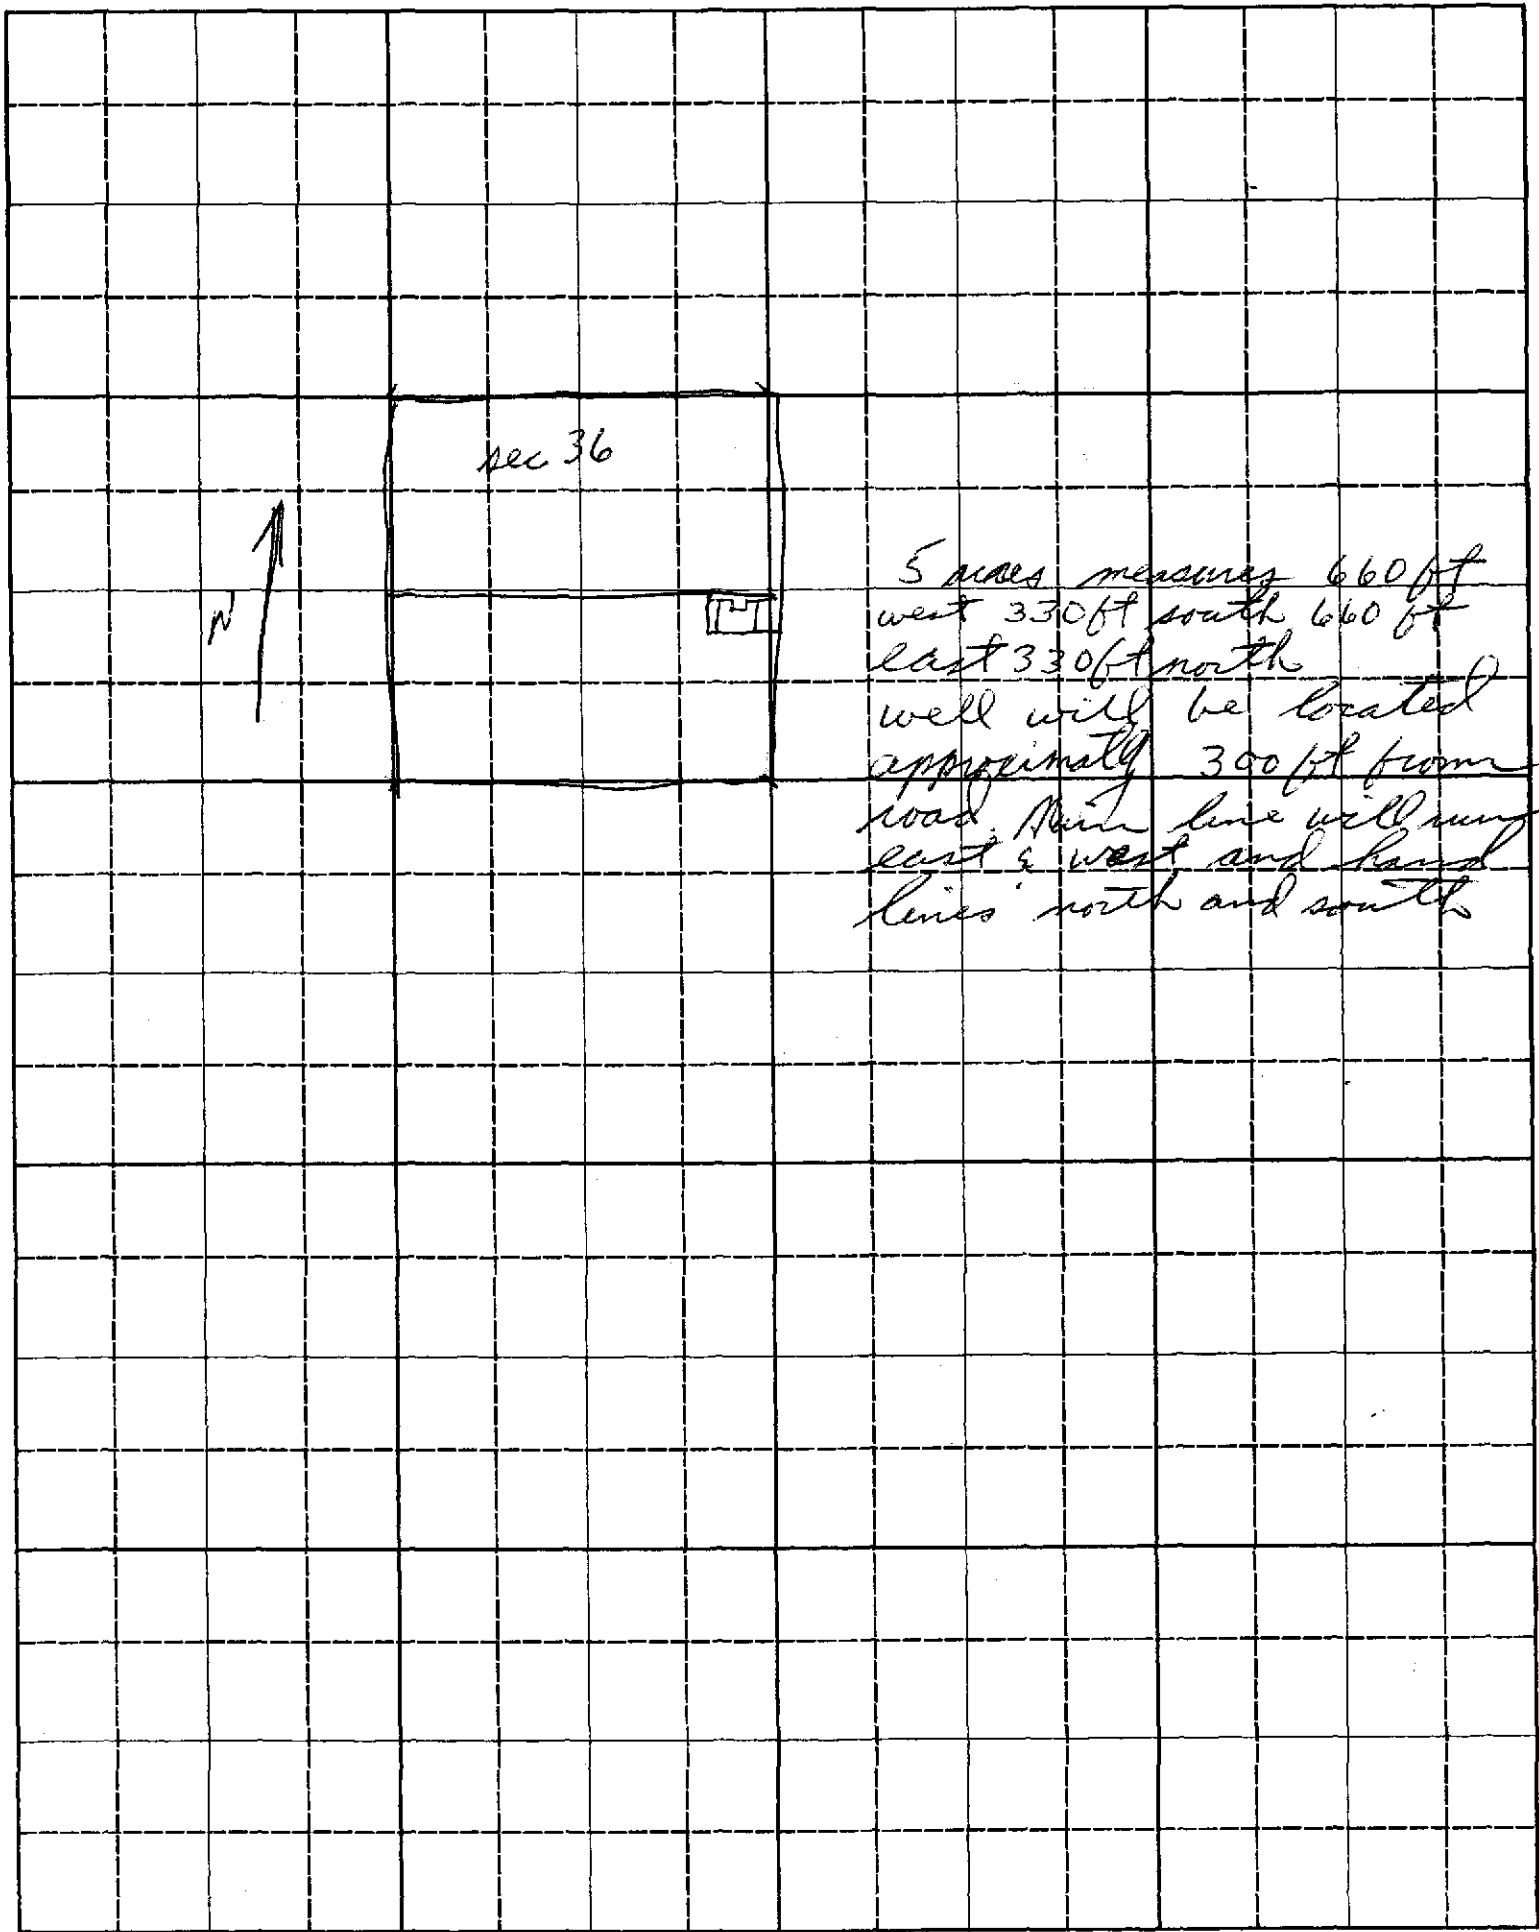 sec 36
N
5 acres measures 660 ft
west 330 ft south 660 ft
east 330 ft north
well will be located
approximatly 300 ft from
road. Main line will run
east & west and hand
lines north and south